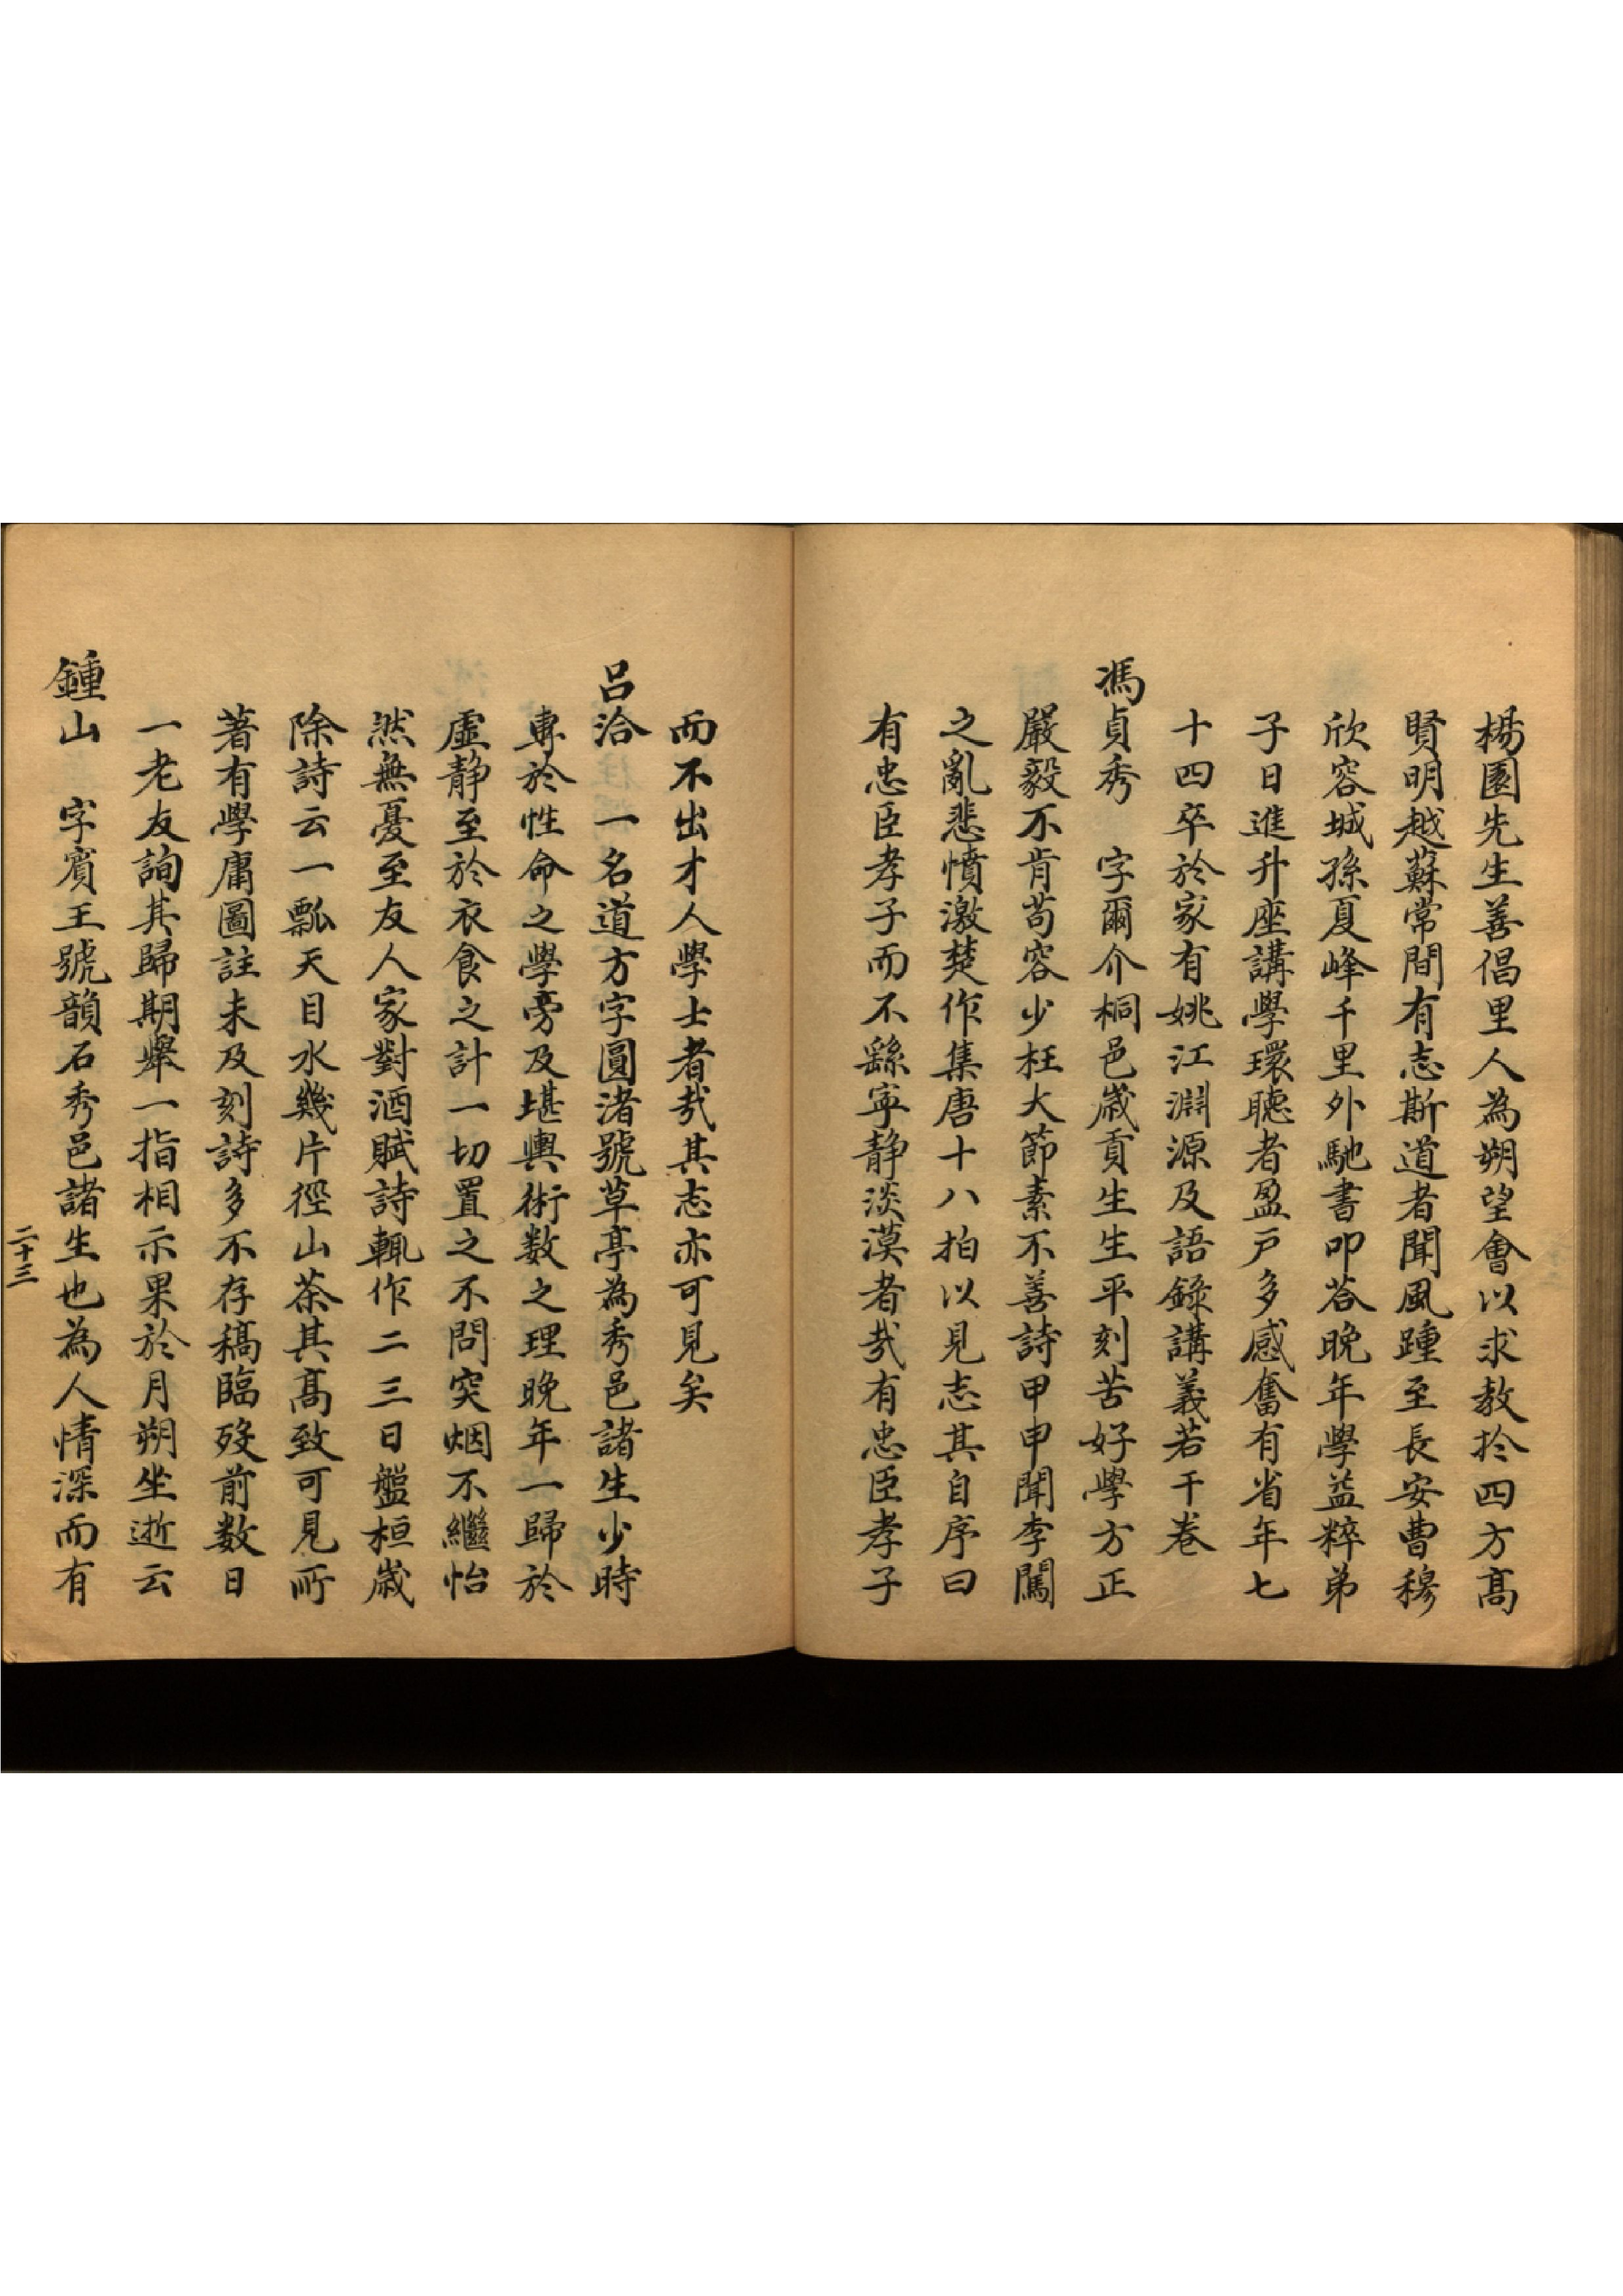 楊園先生善倡里人為朔望會以求教於四方高
賢明越蘇常間有志斯道者聞風踵至長安曹穆
欣容城孫夏峰千里外馳書叩荅晚年學益粹弟
子日進升座講學環聽者盈戶多感奮有省年七
十四卒於家有姚江淵源及語錄講義若干卷
馮貞秀 字爾介桐邑歲貢生生平刻苦好學方正
嚴毅不肯苟容少枉大節素不善詩甲申聞李闖
之亂悲憤激楚作集唐十八拍以見志其自序曰
有忠臣孝子而不繇寧静淡漠者㢤有忠臣孝子
而不出才人學士者㢤其志亦可見矣
呂洽一名道方字圓渚號草亭為秀邑諸生少時
專於性命之學旁及堪輿術数之理晚年一歸於
虛静至於衣食之計一切置之不問突烟不繼怡
然無憂至友人家對酒賦詩輒作二三日盤桓歲
除詩云一瓢天目水幾片徑山茶其高致可見所
著有學庸圖註未及刻詩多不存稿臨歿前数日
一老友詢其歸期舉一指相示果於月朔坐逝云
鍾山 字賓王號韻石秀邑諸生也為人情深而有
二十三